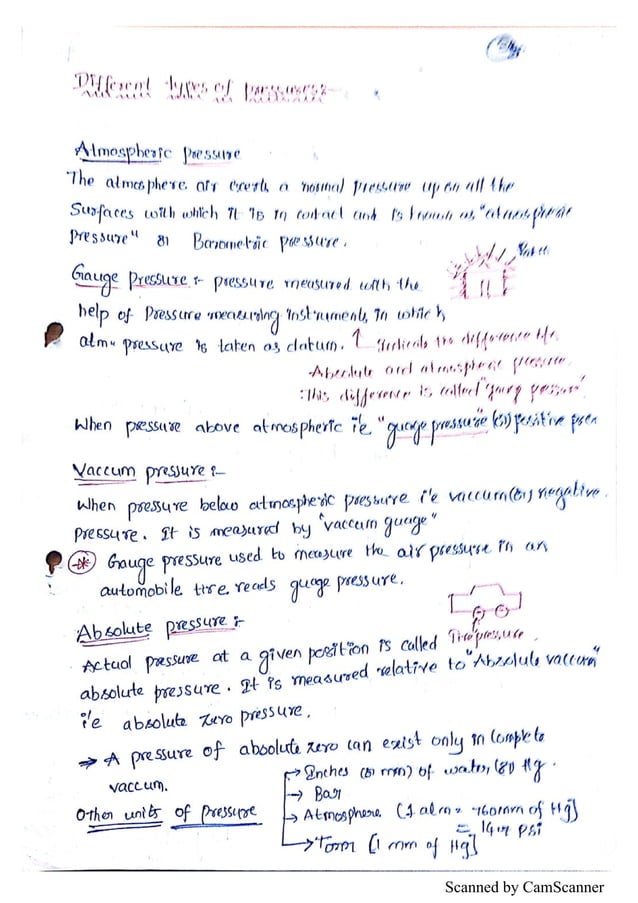 Different types of pressures:-
Atmospheric pressure
The atmosphere air exerts a normal pressure upon all the
Surfaces with which it is in contact and is known as "atmospheric
pressure" or Barometric pressure.
Gauge pressure :- pressure measured with the
help of pressure measuring instruments in which
atm. pressure is taken as datum. ↑ Indicate the difference b/w
Absolute and atmospheric pressure.
This difference is called "gaug pressure"
When pressure above atmospheric i'e "guage pressure" (or) positive
Vaccum pressure :-
When pressure below atmospheric pressure i'e vaccum (or) negative
pressure. It is measured by "vaccum guage"
Gauge pressure used to measure the air pressure in an
automobile tire reads guage pressure.
Absolute pressure :-
Tire pressure.
Actual pressure at a given position is called
absolute pressure. It is measured relative to "Absolute vaccum"
i'e absolute zero pressure.
→ A pressure of absolute zero can exist only in complete
vaccum.
Other units of pressure
→ Inches (or mm) of water (or) Hg.
→ Bar
→ Atmosphere (1 atm = 760mm of Hg)
= 14.7 psi
→ Torr [1 mm of Hg]
Scanned by CamScanner